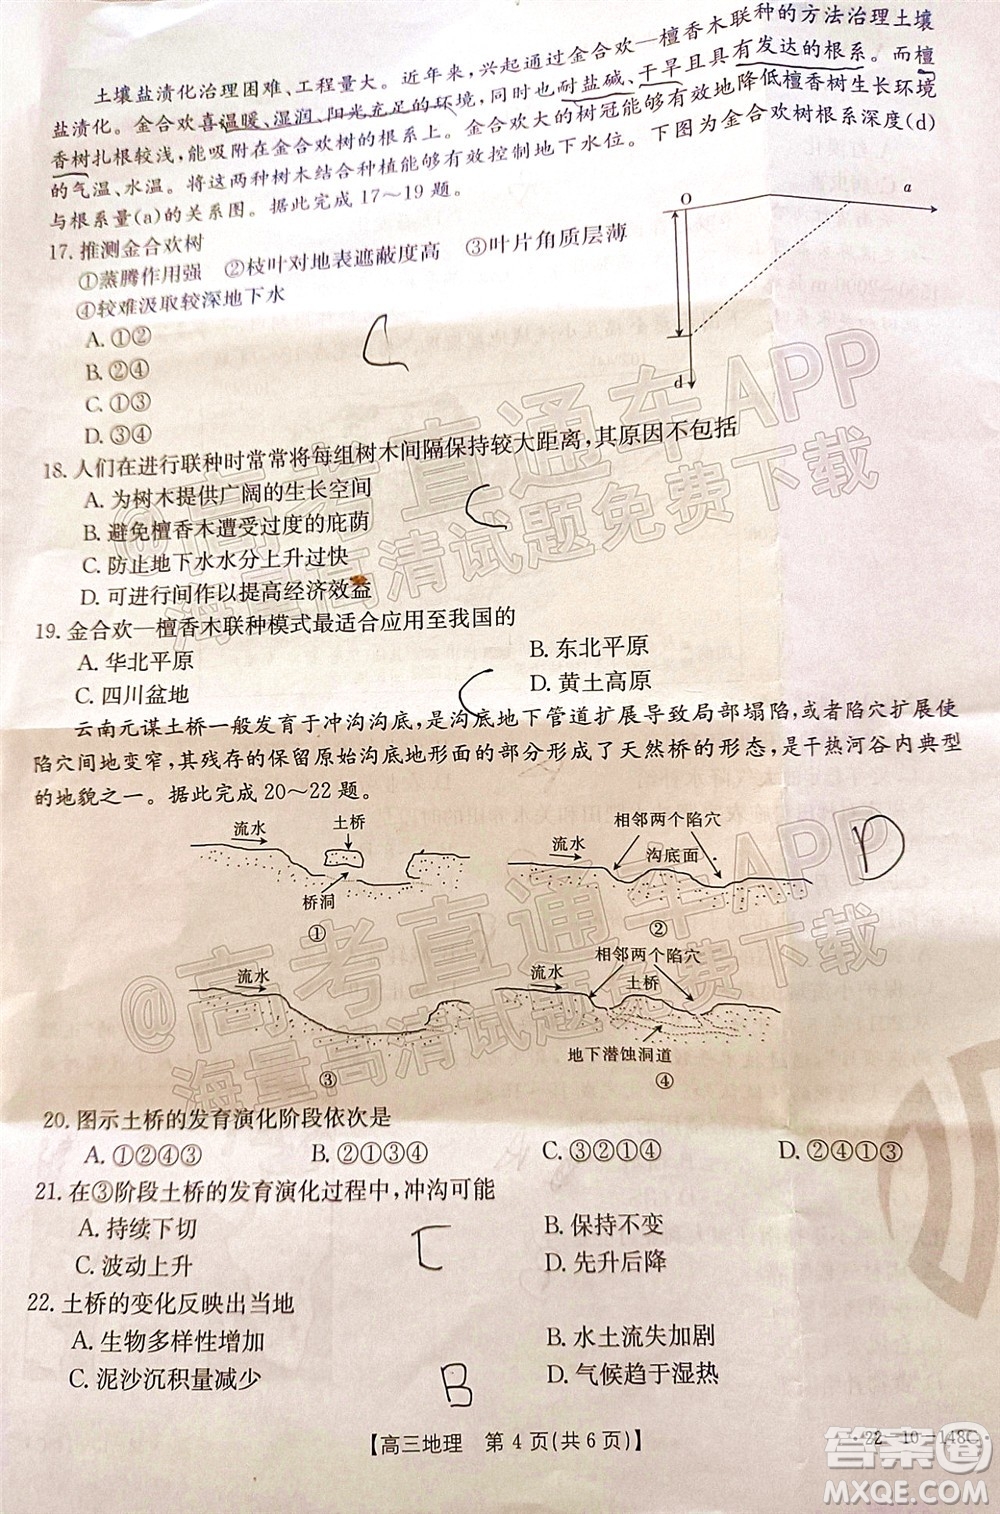 土壤盐渍化治理困难、工程量大。近年来，兴起金合欢—檀香木联种的方法治理土壤
盐渍化。金合欢喜温暖、湿润、阳光充足的环境，同时也耐盐碱、干旱且具有发达的根系。而檀
香树扎根较浅，能吸附在金合欢的根系上。金合欢大的树冠能够有效地降低檀香树生长环境
的气温、水温。将这两种树木结合种植能够有效控制地下水位。下图为金合欢树根系深度(d)
与根系量(a)的关系图。据此完成17～19题。
O
a
d
17. 推测金合欢树
①蒸腾作用强　②枝叶对地表遮蔽度高　③叶片角质层薄
④较难汲取较深地下水
A. ①②
B. ②④
C. ①③
D. ③④
C
18. 人们在进行联种时常常将每组树木间隔保持较大距离，其原因不包括
A. 为树木提供广阔的生长空间
B. 避免檀香木遭受过度的庇荫
C. 防止地下水水分上升过快
D. 可进行间作以提高经济效益
C
19. 金合欢—檀香木联种模式最适合应用至我国的
A. 华北平原
B. 东北平原
C. 四川盆地
D. 黄土高原
C
云南元谋土桥一般发育于冲沟沟底，是沟底地下管道扩展导致局部塌陷，或者陷穴扩展使
陷穴间地变窄，其残存的保留原始沟底地形面的部分形成了天然桥的形态，是干热河谷内典型
的地貌之一。据此完成20～22题。
流水
土桥
桥洞
①
相邻两个陷穴
流水
沟底面
②
D
流水
③
相邻两个陷穴
流水
土桥
地下潜蚀洞道
④
20. 图示土桥的发育演化阶段依次是
A. ①②④③
B. ②①③④
C. ③②①④
D. ②④①③
21. 在③阶段土桥的发育演化过程中，冲沟可能
A. 持续下切
B. 保持不变
C. 波动上升
D. 先升后降
C
22. 土桥的变化反映出当地
A. 生物多样性增加
B. 水土流失加剧
C. 泥沙沉积量减少
D. 气候趋于湿热
B
【高三地理　第 4 页(共 6 页)】
·22－10－148C·
@高考直通车APP
海量高清试题免费下载
@高考直通车APP
海量高清试题免费下载
答案圈
MXQE.COM